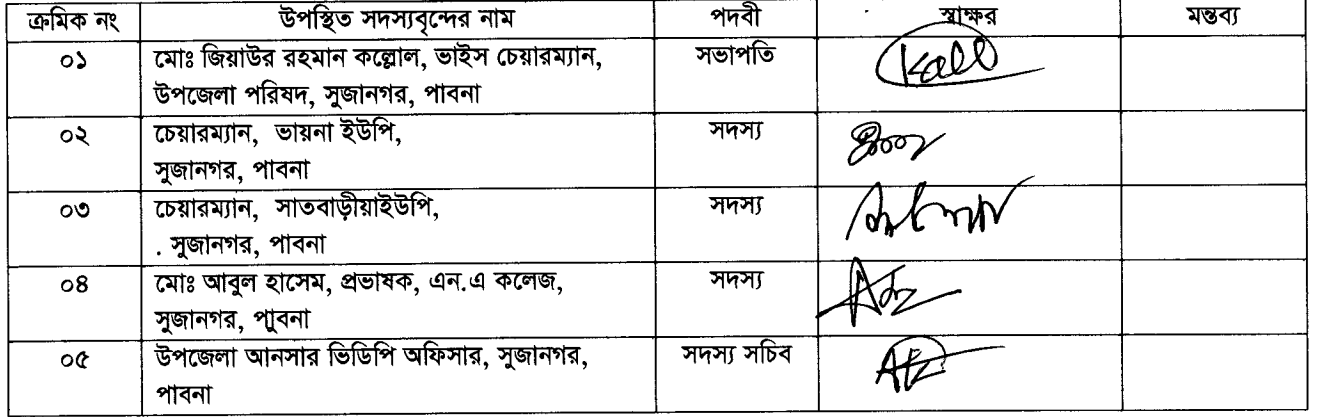 ক্রমিক নং উপস্থিত সদস্যবৃন্দের নাম পদবী স্বাক্ষর মন্তব্য
০১ মোঃ জিয়াউর রহমান কল্লোল, ভাইস চেয়ারম্যান, সভাপতি
উপজেলা পরিষদ, সুজানগর, পাবনা
০২ চেয়ারম্যান, ভায়না ইউপি, সদস্য
সুজানগর, পাবনা
০৩ চেয়ারম্যান, সাতবাড়ীয়াইউপি, সদস্য
. সুজানগর, পাবনা
০৪ মোঃ আবুল হাসেম, প্রভাষক, এন.এ কলেজ, সদস্য
সুজানগর, পাবনা
০৫ উপজেলা আনসার ভিডিপি অফিসার, সুজানগর, সদস্য সচিব
পাবনা